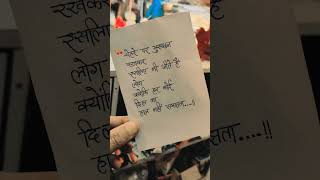 चेहरे पर मुस्कान
रखकर
इसलिए भी जीते है
लोग
क्योंकि हर कोई
दिल का
हाल नही समझता....!!